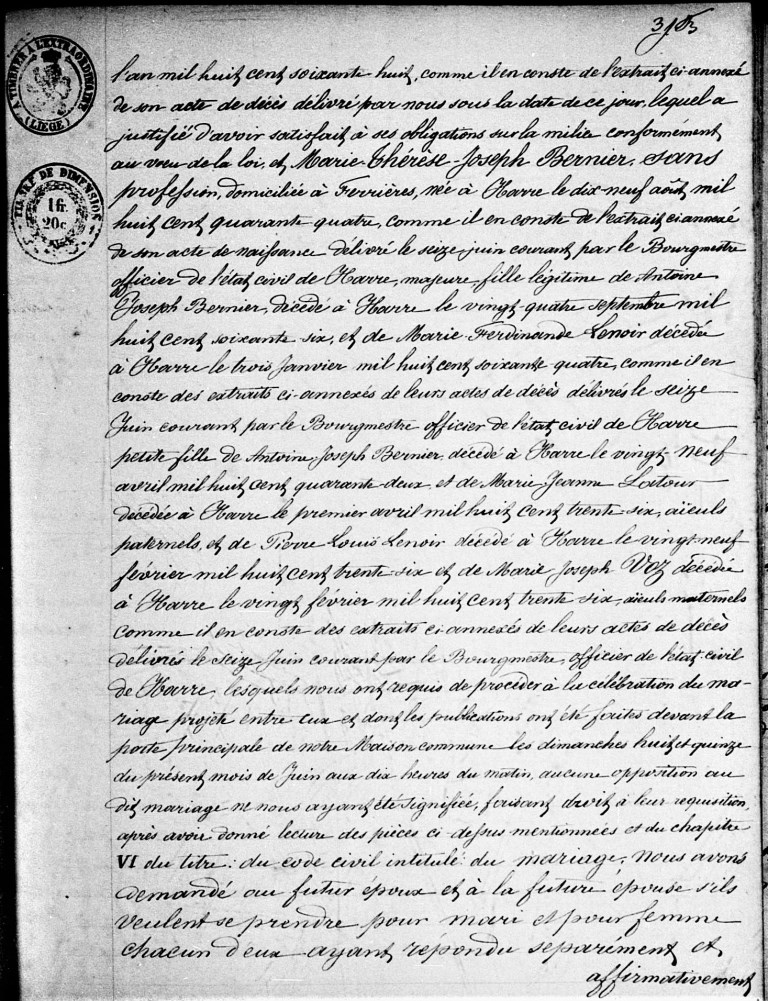 A TIMBRER A L'EXTRAORDINAIRE
(LIEGE)
TIMBRE DE DIMENSION
1 fr.
20 c
l'an mil huit cent soixante huit, comme il en conste de l'extrait ci-annexé
de son acte de décès délivré par nous sous la date de ce jour, lequel a
justifié d'avoir satisfait à ses obligations sur la milice conformément
au vœu de la loi, et Marie-Thérèse-Joseph Bernier, sans
profession, domiciliée à Ferrières, née à Harre le dix-neuf août mil
huit cent quarante quatre, comme il en conste de l'extrait ci annexé
de son acte de naissance délivré le seize juin courant par le Bourgmestre
officier de l'état civil de Harre, majeure, fille légitime de Antoine
Joseph Bernier, décédé à Harre le vingt-quatre septembre mil
huit cent soixante six, et de Marie-Ferdinande Lenoir décédée
à Harre le trois Janvier mil huit cent soixante quatre, comme il en
conste des extraits ci-annexés de leurs actes de décès délivrés le seize
Juin courant par le Bourgmestre officier de l'état civil de Harre
petite fille de Antoine-Joseph Bernier, décédé à Harre le vingt-neuf
avril mil huit cent quarante-deux et de Marie-Jeanne Latour
décédée à Harre le premier avril mil huit cent trente-six, aïeuls
paternels, et de Pierre Louis Lenoir décédé à Harre le vingt-neuf
février mil huit cent trente six et de Marie Joseph Voz décédée
à Harre le vingt février mil huit cent trente six, aïeuls maternels
comme il en conste des extraits ci-annexés de leurs actes de décès
délivrés le seize Juin courant par le Bourgmestre, officier de l'état-civil
de Harre, lesquels nous ont requis de procéder à la célébration du ma-
riage projeté entre eux et dont les publications ont été faites devant la
porte principale de notre Maison commune les dimanches huit et quinze
du présent mois de Juin aux dix heures du matin, aucune opposition au
dit mariage ne nous ayant été signifiée, faisant droit à leur requisition,
après avoir donné lecture des pièces ci-dessus mentionnées et du chapitre
VI du titre: du code civil intitulé: du mariage, Nous avons
demandé au futur époux et à la future épouse s'ils
veulent se prendre pour mari et pour femme
chacun d'eux ayant répondu separément et
affirmativement